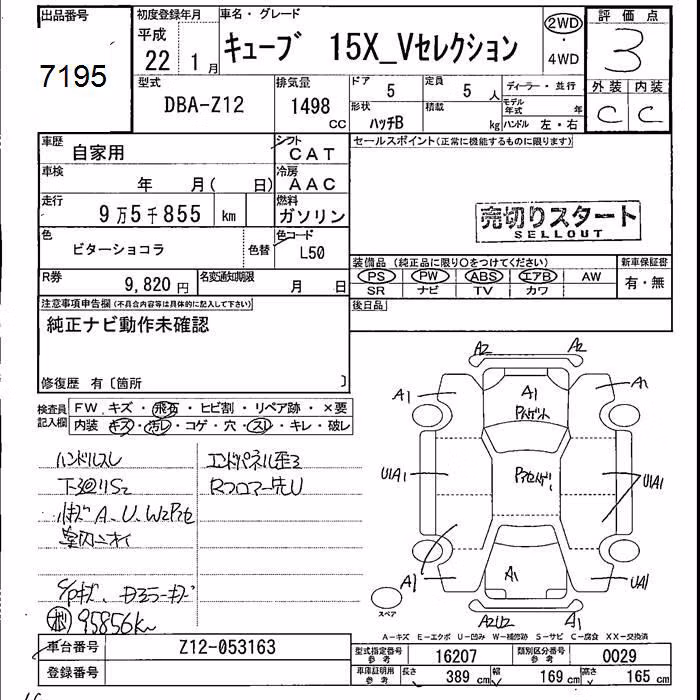 出品番号 初度登録年月 車名・グレード 2WD 評価点
7195 平成 22年 1月 キューブ 15X_Vセレクション ・4WD 3
型式 排気量 ドア 5 定員 5人 ディーラー・並行 外装 内装
DBA-Z12 1498 CC 形状 ハッチB 積載 kg モデル年式 年 C C
ハンドル 左・右
車歴 自家用 シフト CAT セールスポイント(正常に機能するものに限ります)
車検 年 月( 日) 冷房 AAC
走行 9万5千855 km 燃料 ガソリン 売切りスタート
SELLOUT
色 ビターショコラ 色替 色コード L50
装備品(純正品に限り○をつけてください) 新車保証書
PS PW ABS エアB AW 有・無
SR ナビ TV カワ
R券 9,820円 名変通知期限 月 日
後日品
注意事項申告欄(不具合内容等は具体的に記入して下さい)
純正ナビ動作未確認
修復歴 有〔箇所 〕
検査員記入欄 FW. キズ・飛石・ヒビ割・リペア跡・×要
内装 キズ・汚レ・コゲ・穴・スレ・キレ・破レ
ハンドルスレ エンドパネル歪ミ
下廻リS2 Rフロアー先U
小キズA、U、W2P他
室内ニオイ
ボ 95856k
A2 A2
A1 A1 A1
U1A1 U1A1
A1 A1 UA1
A2U2 A1
スペア
A-キズ E-エクボ U-凹み W-補修跡 S-サビ C-腐食 XX-交換済
車台番号 Z12-053163
登録番号
型式指定番号参考 16207 類別区分番号参考 0029
車庫証明用参考 長さ 389cm 幅 169cm 高さ 165cm